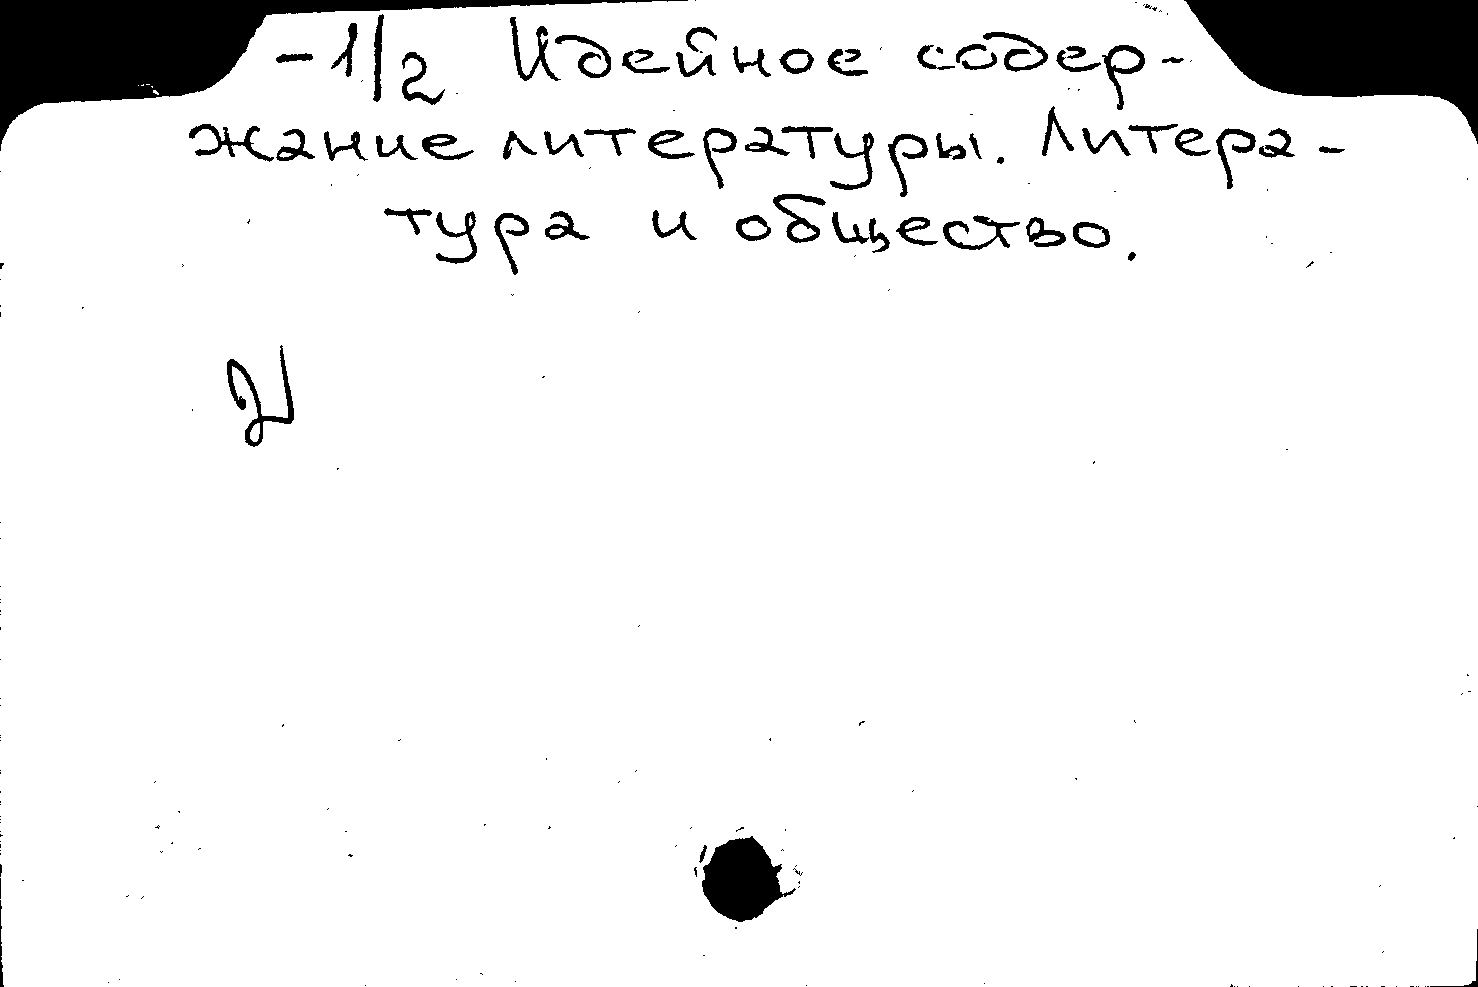 -1/2 Идейное содер-
жание литературы. Литера-
тура и общество.